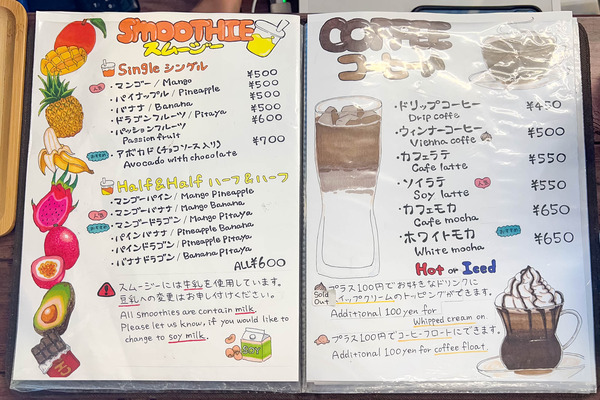 SMOOTHIE
スムージー
Single シングル
人気
・マンゴー / Mango ¥500
・パイナップル / Pineapple ¥500
・バナナ / Banana ¥500
・ドラゴンフルーツ / Pitaya ¥600
・パッションフルーツ
Passion fruit
おすすめ
・アボカド(チョコソース入り) ¥700
Avocado with chocolate
Half&Half ハーフ&ハーフ
・マンゴーパイン / Mango Pineapple
・マンゴーバナナ / Mango Banana
人気
・マンゴードラゴン / Mango Pitaya
・パインバナナ / Pineapple Banana
おすすめ
・パインドラゴン / Pineapple Pitaya
・バナナドラゴン / Banana Pitaya
ALL¥600
スムージーには牛乳を使用しています。
豆乳への変更はお申し付けください。
All smoothies are contain milk.
Please let us know, if you would like to
change to soy milk.
SOY
COFFEE
コーヒー
・ドリップコーヒー ¥450
Drip coffe
・ウィンナーコーヒー ¥500
Vienna coffe
・カフェラテ ¥550
Cafe latte
・ソイラテ 人気 ¥550
Soy latte
・カフェモカ ¥650
Cafe mocha
・ホワイトモカ おすすめ ¥650
White mocha
Hot or Iced
Sold Out
プラス100円でお好きなドリンクに
イップクリームのトッピングができます。
Additional 100 yen for
Whipped cream on.
プラス100円でコーヒーフロートにできます。
Additional 100 yen for coffee float.